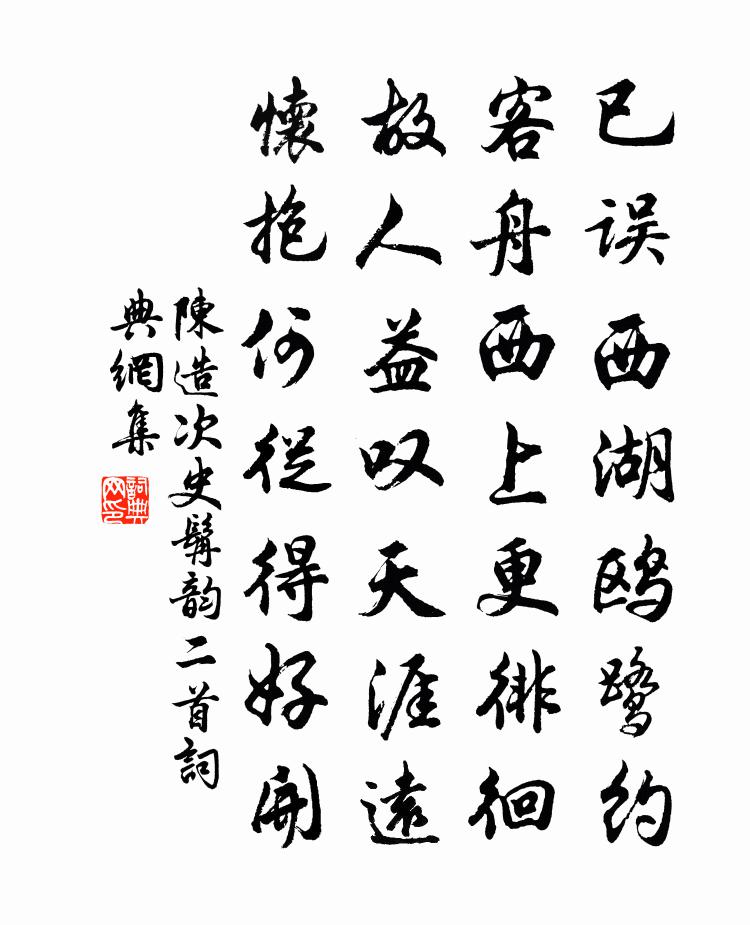 已误西湖鸥鹭约
客舟西上更徘徊
故人益叹天涯遠
懷抱何從得好開
陳造次史髯韵二首詞
典網集
詞典網印